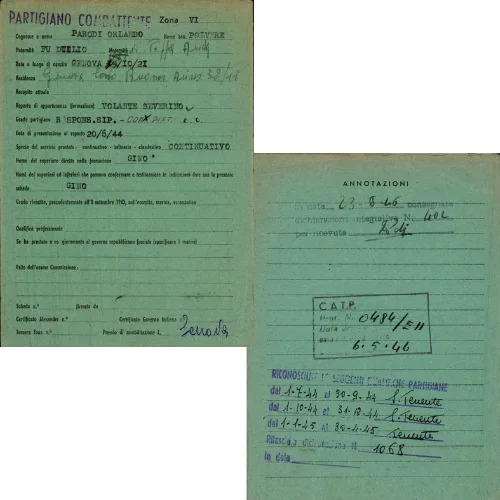 PARTIGIANO COMBATTENTE Zona VI
Cognome e nome PARODI ORLANDO Nome batt. POLVERE
Paternità FU DUILIO Maternità di
Data e luogo di nascita GENOVA /10/21
Residenza Genova
Recapito attuale
Reparto di appartenenza (formazione) VOLANTE SEVERINO
Grado partigiano RESPONS.SIP.
Data di presentazione al reparto 20/6/44
Specie del servizio prestato - continuativo - saltuario - clandestino CONTINUATIVO
Nome del superiore diretto nella formazione GINO
Nomi dei superiori od inferiori che possono confermare e testimoniare le indicazioni date con la presente
scheda GINO
Grado rivestito, precedentemente all'8 settembre 1943, nell'esercito, marina, aeronautica
Qualifica professionale
Se ha prestato o no giuramento al governo repubblicano fascista (specificare il motivo)
Visto dell'esame Commissione
Scheda n.° firmata da
Certificato Alexander n.° Certificato Governo Italiano n.°
Tessera Sono n.° Premio di smobilitazione L.
ANNOTAZIONI
In data 23-8-46 consegnata
dichiarazione integrativa N. 402
per ricevuta
C.A.T.P.
Prot. N. 0484/EH
Data
6.5.46
RICONOSCIUTO GERARCHICHE PARTIGIANE
dal 1-7-44 al 30-9-44 S. Tenente
dal 1-10-44 al 31-12-44 S. Tenente
dal 1-1-45 al 30-4-45 Tenente
N 1068
In data